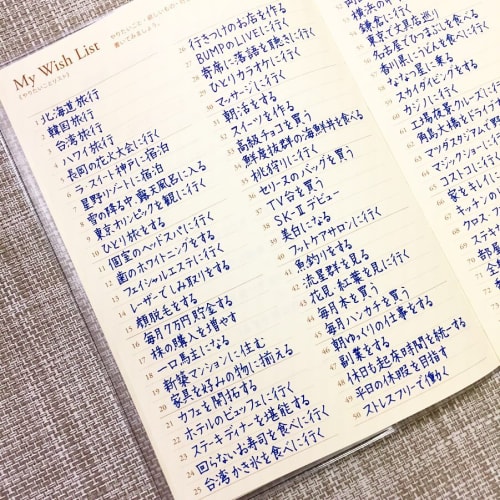 My Wish List
《やりたいことリスト》
やりたいこと・欲しいもの・行
書いてみましょう。
1 北海道旅行
2 韓国旅行
3 台湾旅行
4 ハワイ旅行
5 長岡の花火大会に行く
6 ラ・スイート神戸に宿泊
7 星野リゾートに宿泊
8 雪の降る中、露天風呂に入る
9 東京オリンピックを観に行く
10 ひとり旅をする
11 個室のヘッドスパに行く
12 歯のホワイトニングをする
13 フェイシャルエステに行く
14 レーザーでしみ取りをする
15 顔脱毛をする
16 毎月7万円貯金する
17 株の購入を増やす
18 一口馬主になる
19 新築マンションに住む
20 家具を好みの物に揃える
21 カフェを開拓する
22 ホテルのビュッフェに行く
23 ステーキディナーを堪能する
24 回らないお寿司を食べに行く
25 台湾かき氷を食べに行く
26 行きつけのお店を作る
27 BUMPのLIVEに行く
28 寄席に落語を聴きに行く
29 ひとりカラオケに行く
30 マッサージに行く
31 朝活をする
32 スイーツを作る
33 高級チョコを買う
34 鮮度抜群の海鮮丼を食べる
35 桃狩りに行く
36 セリーヌのバッグを買う
37 TV台を買う
38 SK-Ⅱデビュー
39 美白になる
40 フットケアサロンに行く
41 魚釣りをする
42 流星群を見る
43 花見・紅葉を見に行く
44 毎月本を買う
45 毎月ハンカチを買う
46 朝ゆっくりの仕事をする
47 副業をする
48 休日も起床時間を統一する
49 平日の休暇を目指す
50 ストレスフリーで働く
横浜の
鎌倉に行く
東京で文具店巡り
名古屋でひつまぶしを食べる
香川県にうどんを食べに行く
ななつ星に乗る
スカイダイビングをする
カジノに行く
工場夜景クルーズに行
角島大橋をドライブ
マツダスタジアムで野
マジックショーに
コストコに行
家をキレイ
キッチンの
クロス・フ
ステキ
部屋